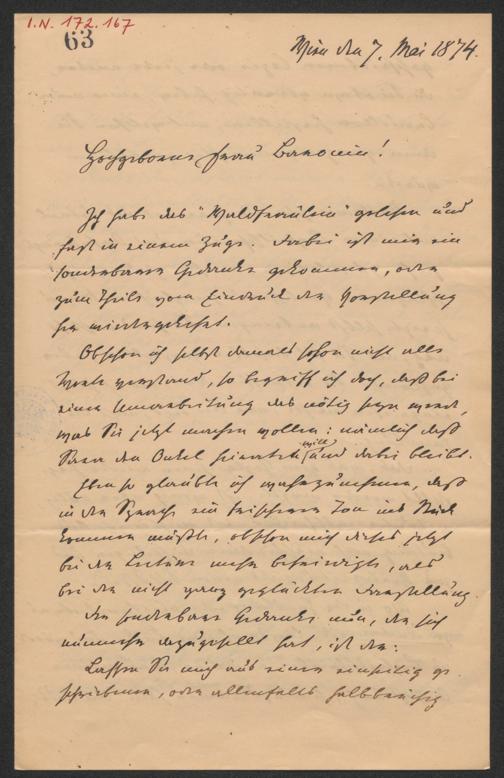 I.N. 172.167
63
Wien den 7. Mai 1874.
Hochgeborene Frau Baronin!
Ich habe das "Waldfräulein" gelesen und
fast in einem Zuge. Dabei ist mir ein
sonderbarer Gedanke gekommen, oder
zum Theile vom Eindruck der Vorstellung
her wiedergekehrt.
Obschon ich selbst damals schon nicht alle
Worte verstand, so begriff ich doch, daß bei
einer Umarbeitung das nötig seyn werde,
was Sie jetzt machen wollen: nämlich daß
Sara den Onkel heiraten will und dabei bleibt.
Eben so glaubte ich wahrzunehmen, daß
in der Sprache ein frischerer Ton ins Stück
kommen müßte, obschon mich dieses jetzt
bei der Lectüre mehr befriedigte, als
bei der nicht ganz geglückten Darstellung.
Der sonderbare Gedanke nun, der sich
nunmehr dazugesellt hat, ist der:
Lassen Sie mich aus einem einseitig ge
schriebenen, oder allenfalls halbbrüchig